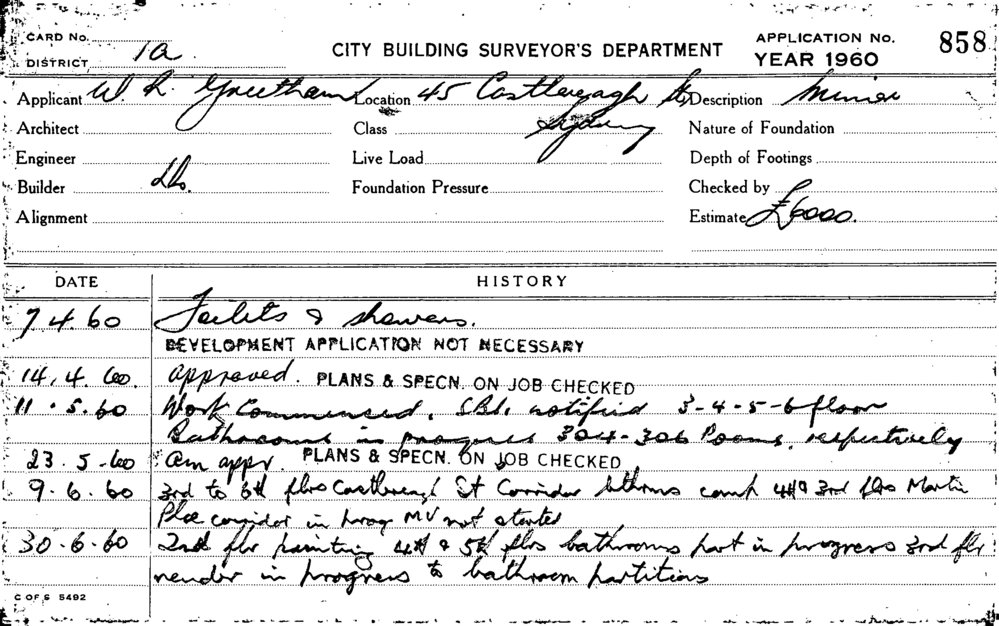 CARD No.
DISTRICT 1a
CITY BUILDING SURVEYOR'S DEPARTMENT
APPLICATION No. 858
YEAR 1960
Applicant W. R. Greetham Location 45 Castlereagh St Description Minor
Sydney
Architect Class Nature of Foundation
Engineer Live Load Depth of Footings
Builder do. Foundation Pressure Checked by
Alignment Estimate £6000.
DATE HISTORY
7 4.60 Toilets & showers.
DEVELOPMENT APPLICATION NOT NECESSARY
14.4.60. approved. PLANS & SPECN. ON JOB CHECKED
11.5.60 Work Commenced. notified 3-4-5-6 floor
Bathrooms in progress 304-306 Rooms, respectively
23.5.60 am appr. PLANS & SPECN. ON JOB CHECKED
9.6.60 3rd to 6th flrs Castlereagh St Corridor bthrms comp 4th & 3rd flrs Martin
Plce corridor in prog MV not started
30.6.60 2nd flr painting 4th & 5th flrs bathrooms part in progress 3rd flr
render in progress to bathroom partitions
C OF S 5492